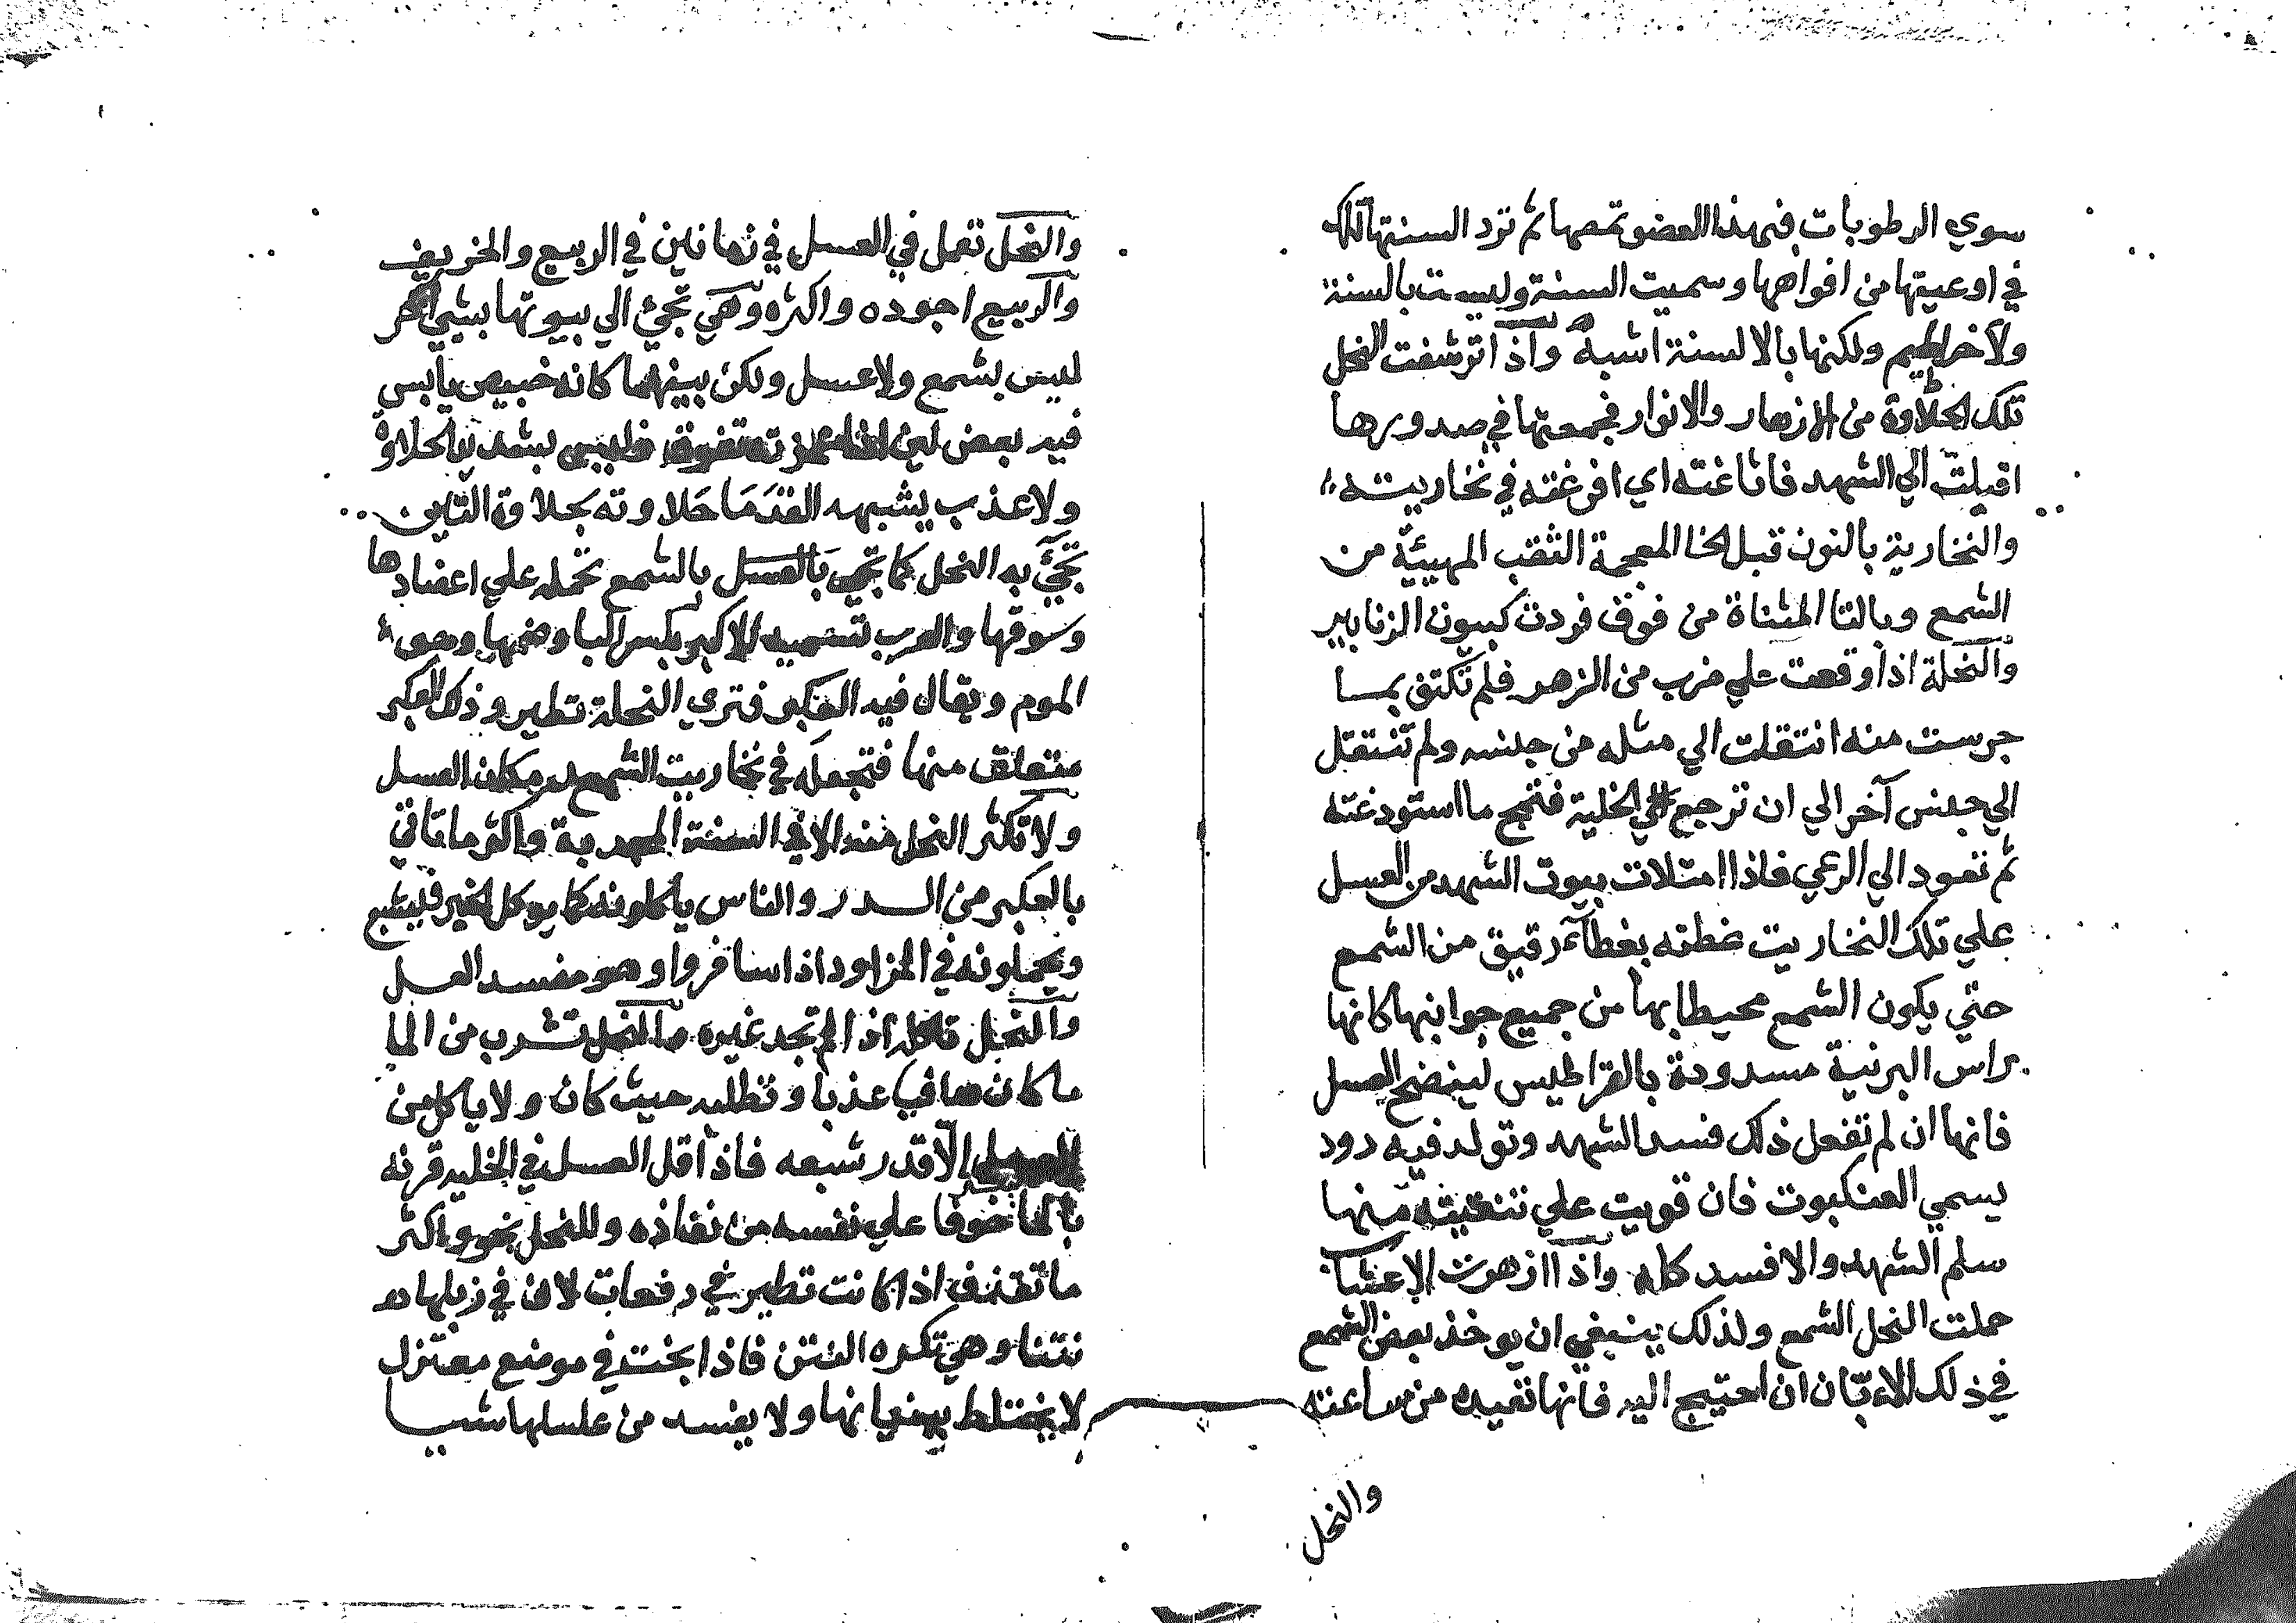 سوي الرطوبات فبهذا العضو تمصها ثم ترد السنتها تلك
في اوعيتها من افواهها وسميت السنة وليست بالسنة
ولا خراطيم ولكنها بالالسنة اشبه واذا ترشفت النحل
تلك الحلاوة من الازهار والانوار فجمعتها في صدورها
اقبلت الي الشهد فاتاغته اي افرغته في نخاريته
والنخارية بالنون قبل الخا المعجمة الثقب المهيئة من
الشمع وبالتا المثناة من فوق فردت كبيوت الزنابير
والنحلة اذا وقعت علي ضرب من الزهر فلم تكتف بما
جرست منه انتقلت الي مثله من جنسه ولم تنتقل
الي جنس آخر الي ان ترجع الي الخلية فتمج ما استودعته
ثم تعود الي الرعي فاذا امتلات بيوت الشهد من العسل
علي تلك النخاريت غطته بغطآء رقيق من الشمع
حتي يكون الشمع محيطا بها من جميع جوانبها كانها
راس البرنية مسدودة بالقراطيس لينضج العسل
فانها ان لم تفعل ذلك فسد الشهد وتولد فيه دود
يسمي العنكبوت فان قويت علي تنقيته منها
سلم الشهد والا فسد كله واذا ازهرت الاعشاب
حملت النحل الشمع ولذلك ينبغي ان يوخذ بعض الشمع
في ذلك الابان ان احتيج اليه فانها تعيده من ساعته
والنحل
والنحل تعمل في العسل في زمانين في الربيع والخريف
والربيع اجوده واكثره وهي تجئ الي بيوتها بشئ اخر
ليس بشمع ولا عسل ولكن بينهما كانه خبيص يابس
فيه بعض لين فليس بشديد الحلاوة
ولا عذب يشبهه القدما حلاوته بحلاوة التين
تجئ به النحل كما تجي بالعسل بالشمع تحمله علي اعضادها
وسوقها والعرب تسميه الاكبر بكسر البا وضمها وهو
الموم ويقال فيه العكبر فتري النحلة تطير وذلك العكبر
متعلق منها فتجعله في نخاريت الشهد مكان العسل
ولا تكثر النحل منه الا في السنة الجدبة واكثر ما تاتي
بالعكبر من السدر والناس ياكلونه كما يوكل الخبز فيشبع
ويحملونه في المزاود اذا سافروا وهو مفسد العسل
والنحل تاكله اذا لم تجد غيره والنحل تشرب من الما
ما كان صافيا عذبا وتطلبه حيث كان ولا ياكل من
العسل الا قدر شبعه فاذا قل العسل في الخلية قرنه
بالما خوفا علي نفسه من نفاذه وللنحل نجو واكثر
ما تقذف اذا كانت تطير في دفعات لان في زبلها
نتنا وهي تكره النتن فاذا نجت في موضع معتزل
لا يختلط ولا يفسد من عسلها شيا